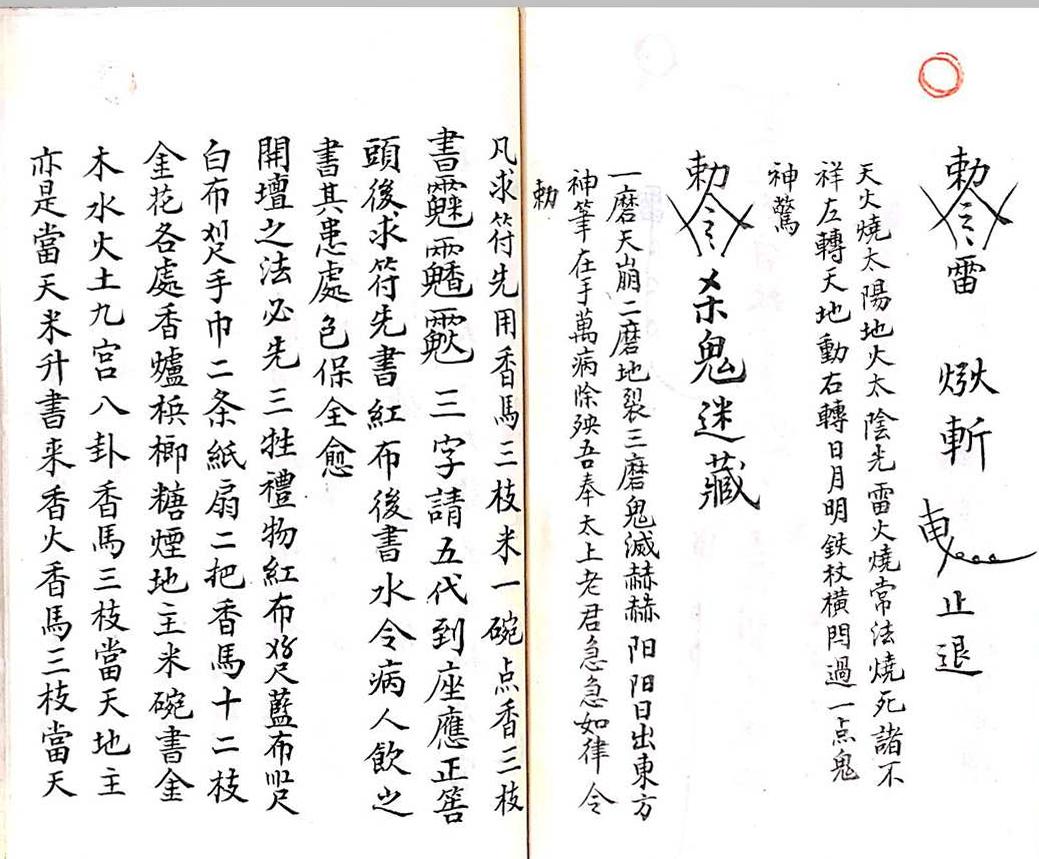 勅令雷 斬 止退
天火燒太陽地火太陰先雷火燒常法燒死諸不
祥左轉天地動右轉日月明鉄杖橫閂過一点鬼
神驚
勅令杀鬼迷藏
一磨天崩二磨地裂三磨鬼滅赫赫阳阳日出東方
神筆在手萬病除殃吾奉太上老君急急如律令
勅
凡求符先用香馬三枝米一碗点香三枝
書 三字請五代到座應正筶
頭後求符先書紅布後書水令病人飲之
書其患處包保全愈
開壇之法必先三牲禮物紅布尺藍布尺
白布尺手巾二条紙扇二把香馬十二枝
金花各處香爐梹榔糖煙地主米碗書金
木水火土九宮八卦香馬三枝當天地主
亦是當天米升書来香火香馬三枝當天